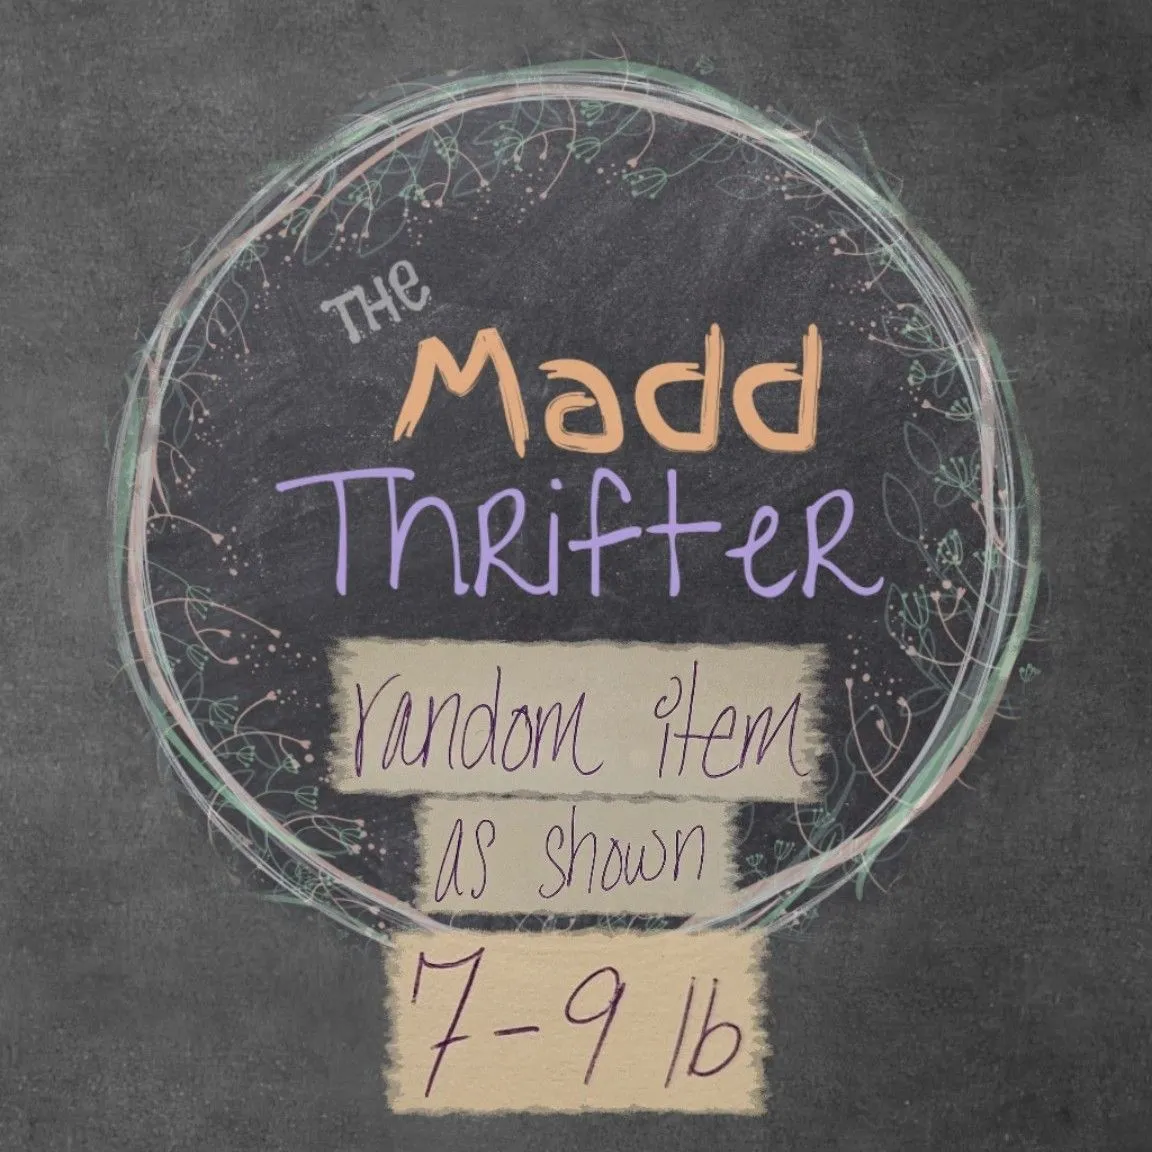 THe
Madd
ThRifteR
random item
as shown
7-9 lb